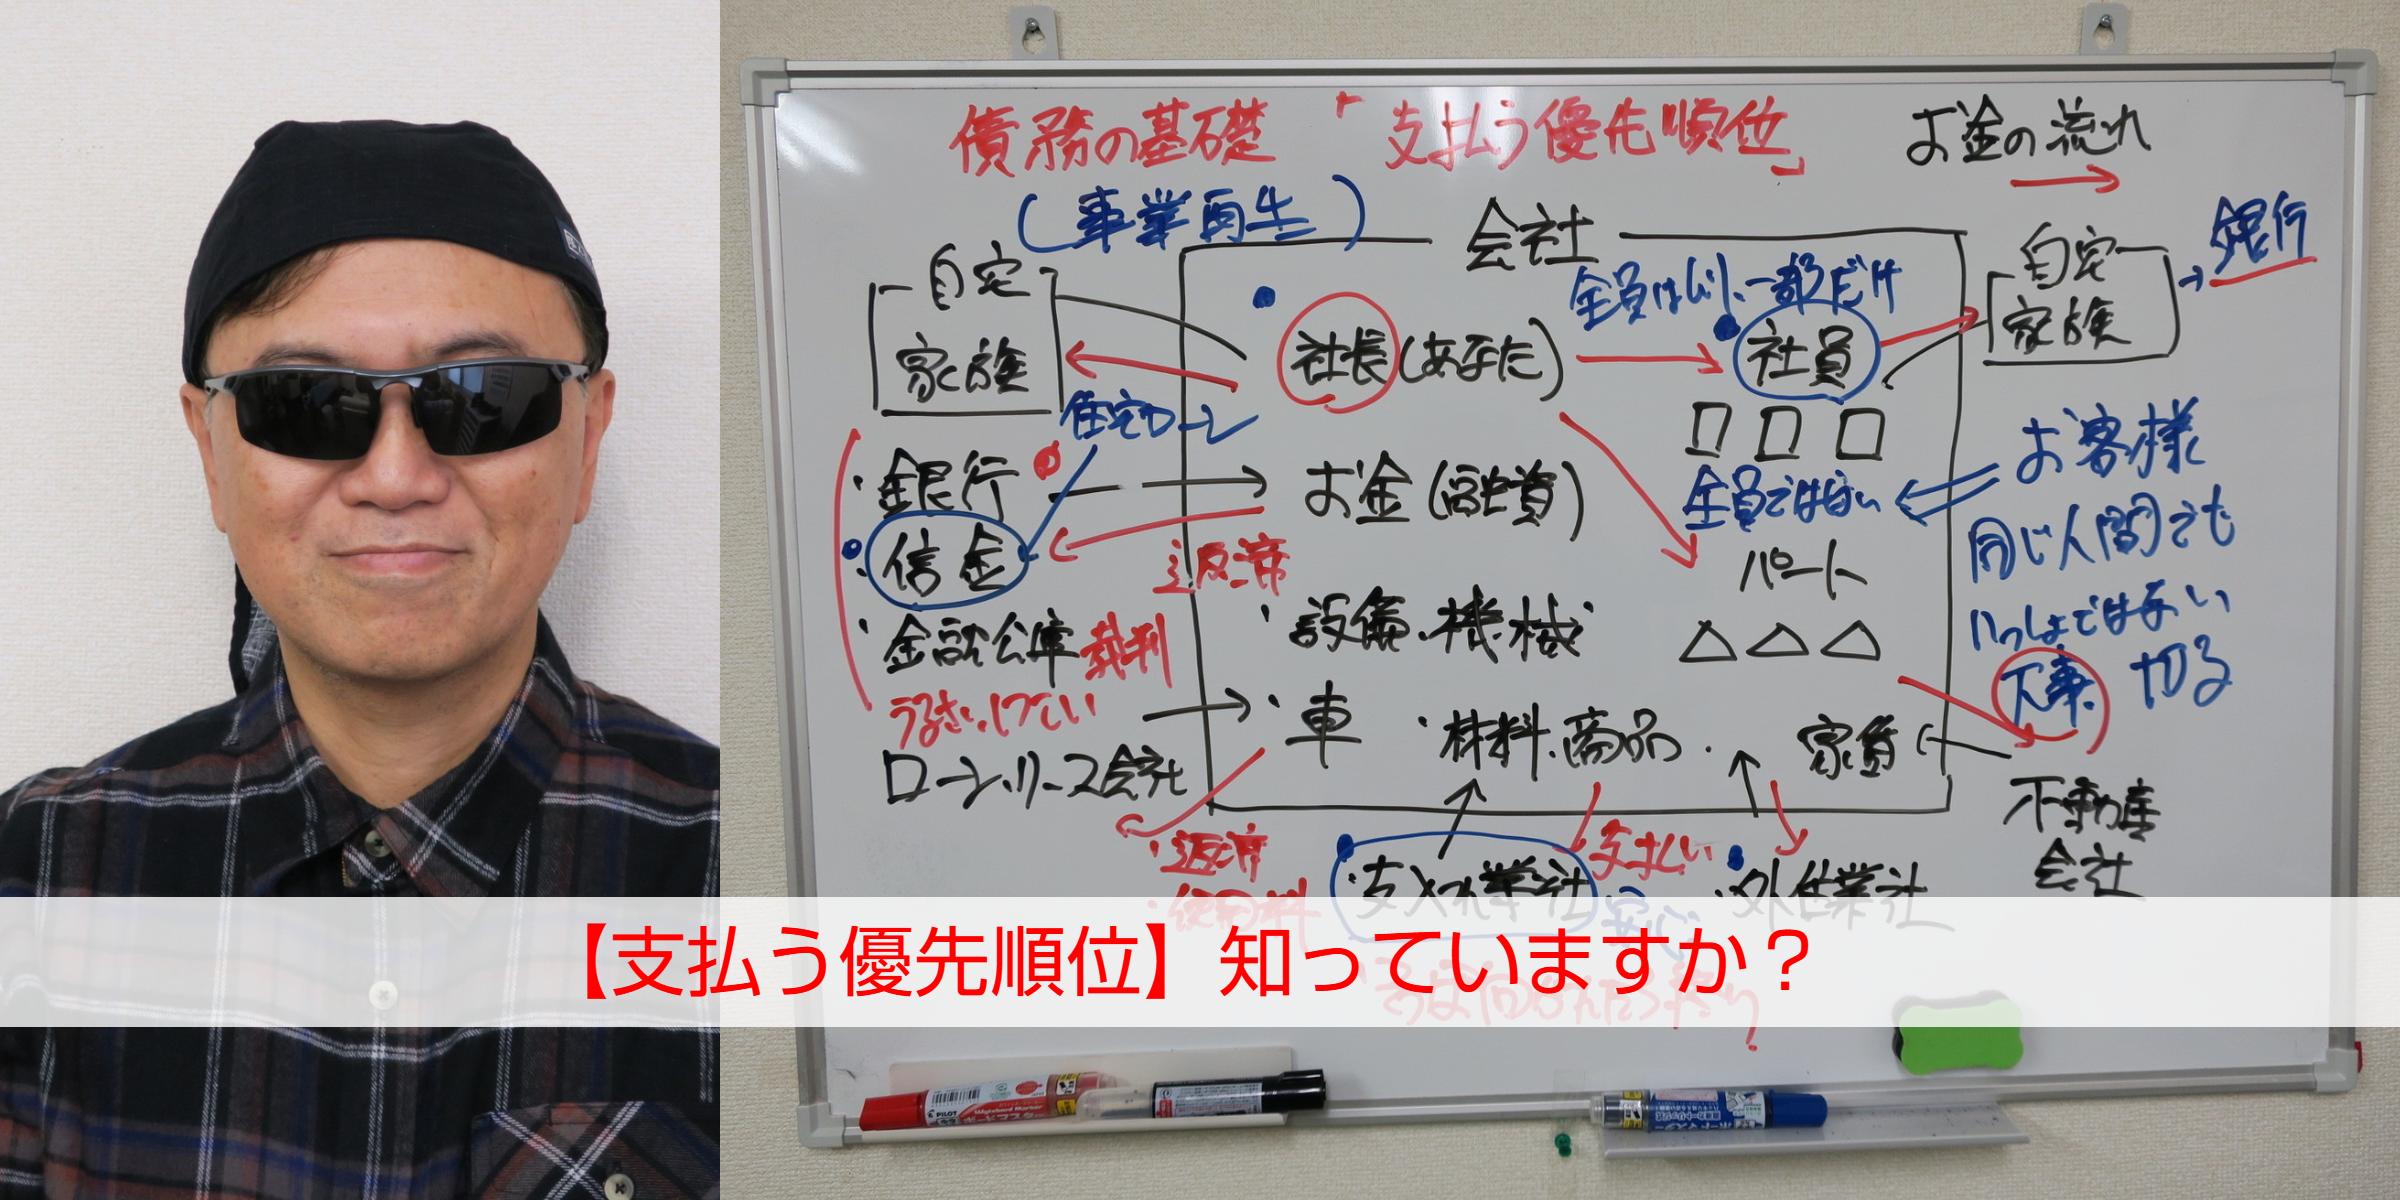 債務の基礎 「支払う優先順位」
お金の流れ
(事業再生)
会社
自宅
家族
社長(あなた)
全員はムリ、一部だけ
社員
自宅
家族
銀行
住宅ローン
・銀行
お金(融資)
返済
全員ではない
お客様
・信金
パート
同じ人間でも
いっしょではない
大事 切る
・金融公庫 裁判
うるさい、しつこい
・設備・機械
ローン・リース会社
・車
・材料、商品
家賃
不動産
会社
・返済
・使用料
・支入れ業社
支払い
・外注業社
【支払う優先順位】知っていますか？
PILOT
Whiteboard Marker
ボードマスター
ボードマスター